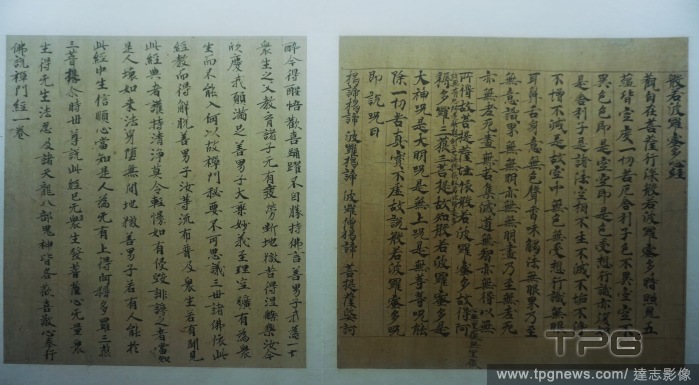 般若波羅蜜多心經
觀自在菩薩行深般若波羅蜜多時照見五
蘊皆空度一切苦厄舍利子色不異空空不
異色色即是空空即是色受想行識亦復如
是舍利子是諸法空相不生不滅不垢不淨
不增不減是故空中無色無受想行識無眼
耳鼻舌身意無色聲香味觸法無眼界乃至
無意識界無無明盡乃至無老死
亦無老死盡無苦集滅道無智亦無得以無
所得故菩提薩埵依般若波羅蜜多故得阿
耨多羅三藐三菩提故知般若波羅蜜多是
大神呪是大明呪是無上呪是無等等呪能
除一切苦真實不虛故說般若波羅蜜多呪
即說呪曰
揭諦揭諦 波羅揭諦 波羅僧揭諦 菩提薩婆訶
醉今得醒悟歡喜踊躍不自勝持佛言善男子我為一切
眾生之父教育諸子无有疲勞斷地獄苦得涅槃樂汝今
欣慶我願滿足善男子大乘妙義至理空曠有為眾
生而不能入何以故禪門秘要不可思議三世諸佛依此
經教而得解脫善男子汝善流布普及眾生若有聞見
此經典者護持清淨莫令輕慢如有侵毀誹謗之者當知
是人壞如來法身墮無間地獄善男子若有人能於
此經中生信順心當知是人為无有上得阿耨多羅三藐
三菩提尒時世尊說此經已无眾生發菩薩心无量眾
生得无生法忍及諸天龍八部鬼神皆各歡喜敬心奉行
佛說禪門經一卷
TPG
www.tpgnews.com/ 達志影像